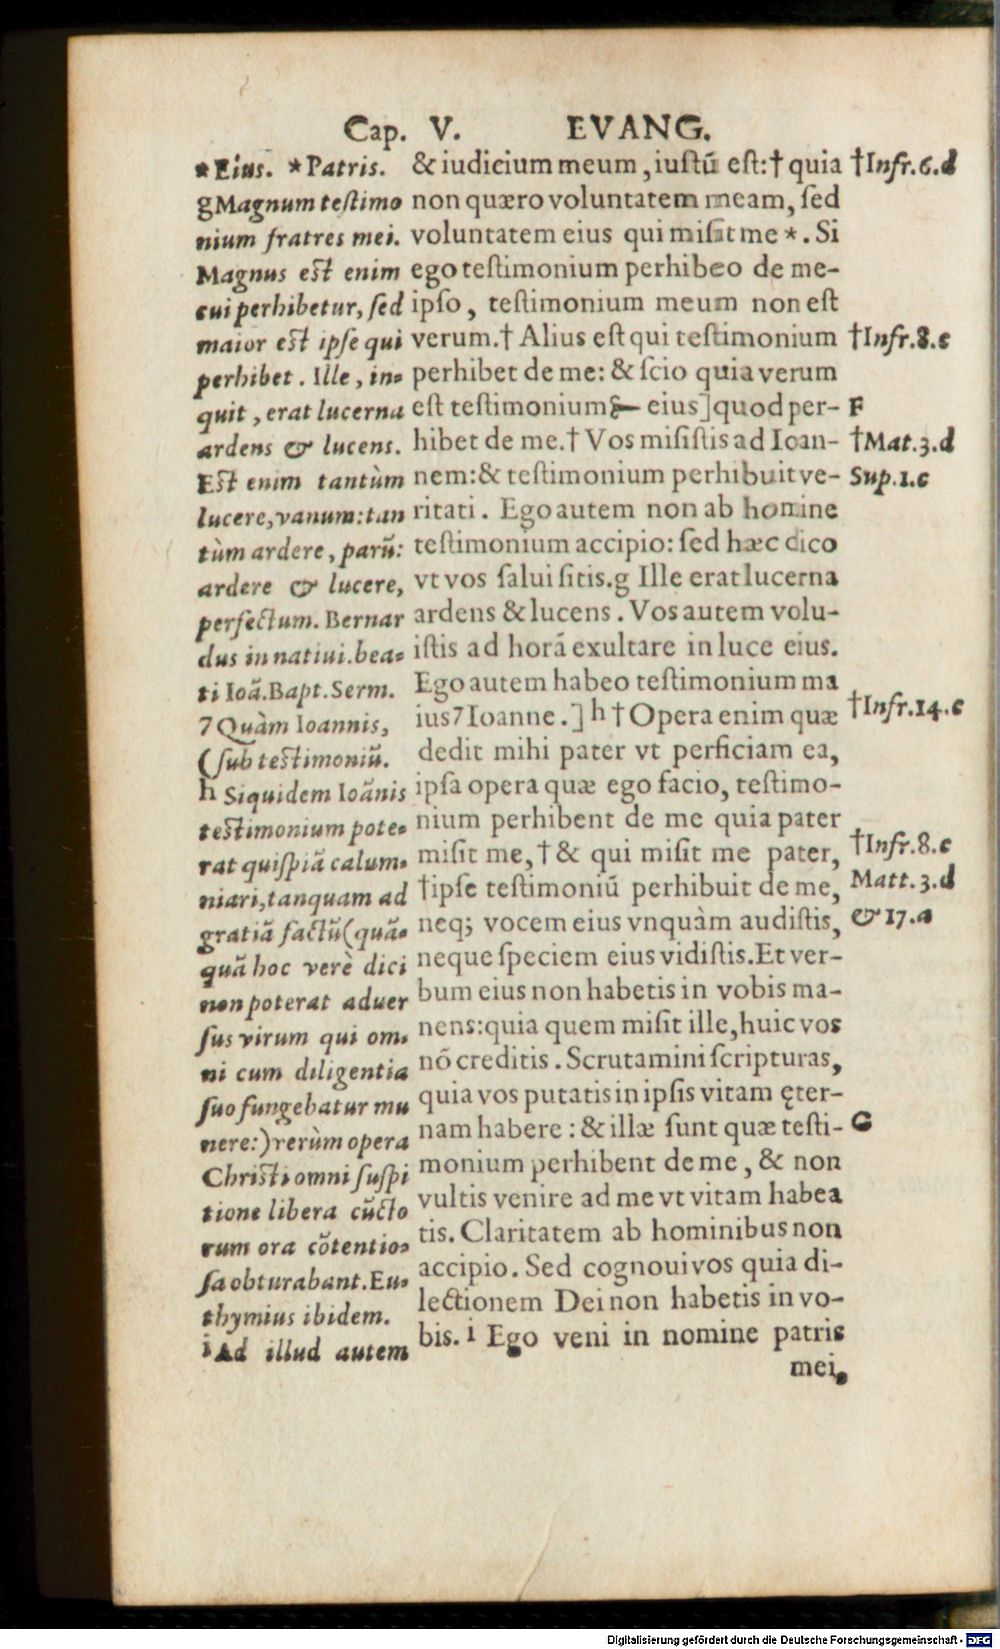 Cap. V. EVANG.
*Eius. *Patris.
gMagnum testimo
nium fratres mei.
Magnus est enim
cui perhibetur, sed
maior est ipse qui
perhibet. Ille, in-
quit, erat lucerna
ardens & lucens.
Est enim tantùm
lucere, vanum: tan
tùm ardere, parū:
ardere & lucere,
perfectum. Bernar
dus in natiui. bea-
ti Ioā. Bapt. Serm.
7 Quàm Ioannis,
(sub testimoniū.
h Siquidem Ioānis
testimonium pote-
rat quispiā calum-
niari, tanquam ad
gratiā factū (quā-
quā hoc verè dici
non poterat aduer
sus virum qui om-
ni cum diligentia
suo fungebatur mu
nere:) rerùm opera
Christi omni suspi
tione libera cūcto
rum ora cōtentio-
sa obturabant. Eu-
thymius ibidem.
i Ad illud autem
& iudicium meum, iustū est: † quia
non quæro voluntatem meam, sed
voluntatem eius qui misit me *. Si
ego testimonium perhibeo de me-
ipso, testimonium meum non est
verum. † Alius est qui testimonium
perhibet de me: & scio quia verum
est testimonium eius] quod per-
hibet de me. † Vos misistis ad Ioan-
nem: & testimonium perhibuit ve-
ritati. Ego autem non ab homine
testimonium accipio: sed hæc dico
vt vos salui sitis. g Ille erat lucerna
ardens & lucens. Vos autem volu-
istis ad horā exultare in luce eius.
Ego autem habeo testimonium ma
ius 7 Ioanne.] h † Opera enim quæ
dedit mihi pater vt perficiam ea,
ipsa opera quæ ego facio, testimo-
nium perhibent de me quia pater
misit me, † & qui misit me pater,
†ipse testimoniū perhibuit de me,
neq; vocem eius vnquàm audistis,
neque speciem eius vidistis. Et ver-
bum eius non habetis in vobis ma-
nens: quia quem misit ille, huic vos
nō creditis. Scrutamini scripturas,
quia vos putatis in ipsis vitam ęter-
nam habere: & illæ sunt quæ testi-
monium perhibent de me, & non
vultis venire ad me vt vitam habea
tis. Claritatem ab hominibus non
accipio. Sed cognoui vos quia di-
lectionem Dei non habetis in vo-
bis. i Ego veni in nomine patris
mei,
†Infr.6.d
†Infr.8.c
F
†Mat.3.d
Sup.1.c
†Infr.14.c
†Infr.8.c
Matt.3.d
& 17.a
G
Digitalisierung gefördert durch die Deutsche Forschungsgemeinschaft - DFG